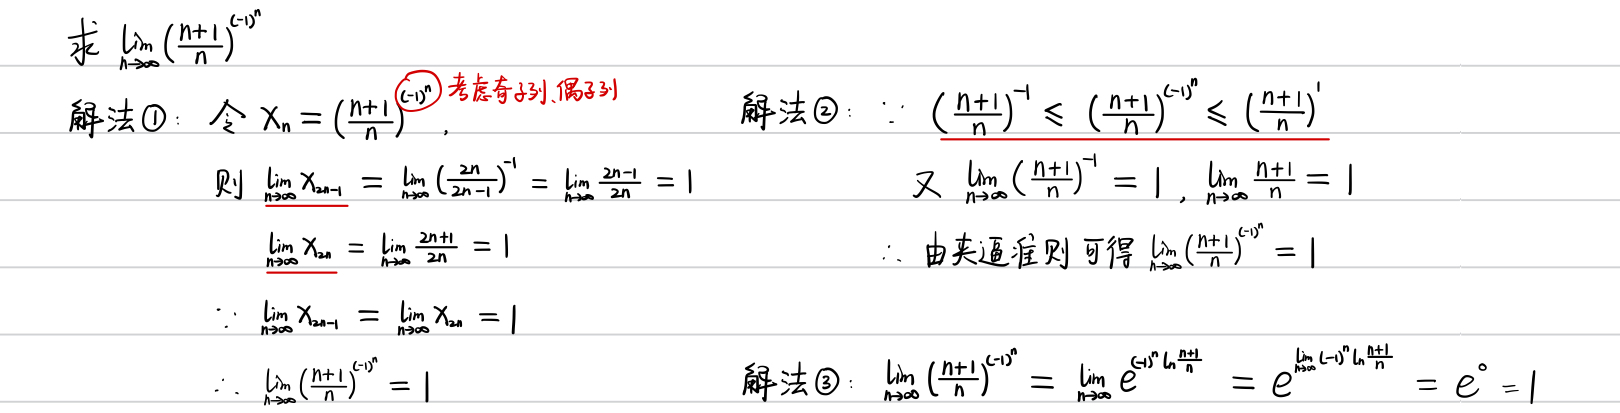 求 lim_{n→∞} ((n+1)/n)^{(-1)^n}
解法①: 令 X_n = ((n+1)/n)^{(-1)^n}, 考虑奇子列、偶子列
则 lim_{n→∞} X_{2n-1} = lim_{n→∞} (2n/(2n-1))^{-1} = lim_{n→∞} (2n-1)/2n = 1
lim_{n→∞} X_{2n} = lim_{n→∞} (2n+1)/2n = 1
∵ lim_{n→∞} X_{2n-1} = lim_{n→∞} X_{2n} = 1
∴ lim_{n→∞} ((n+1)/n)^{(-1)^n} = 1
解法②: ∵ ((n+1)/n)^{-1} ≤ ((n+1)/n)^{(-1)^n} ≤ ((n+1)/n)^1
又 lim_{n→∞} ((n+1)/n)^{-1} = 1, lim_{n→∞} (n+1)/n = 1
∴ 由夹逼准则可得 lim_{n→∞} ((n+1)/n)^{(-1)^n} = 1
解法③: lim_{n→∞} ((n+1)/n)^{(-1)^n} = lim_{n→∞} e^{(-1)^n ln (n+1)/n} = e^{lim_{n→∞} (-1)^n ln (n+1)/n} = e^0 = 1